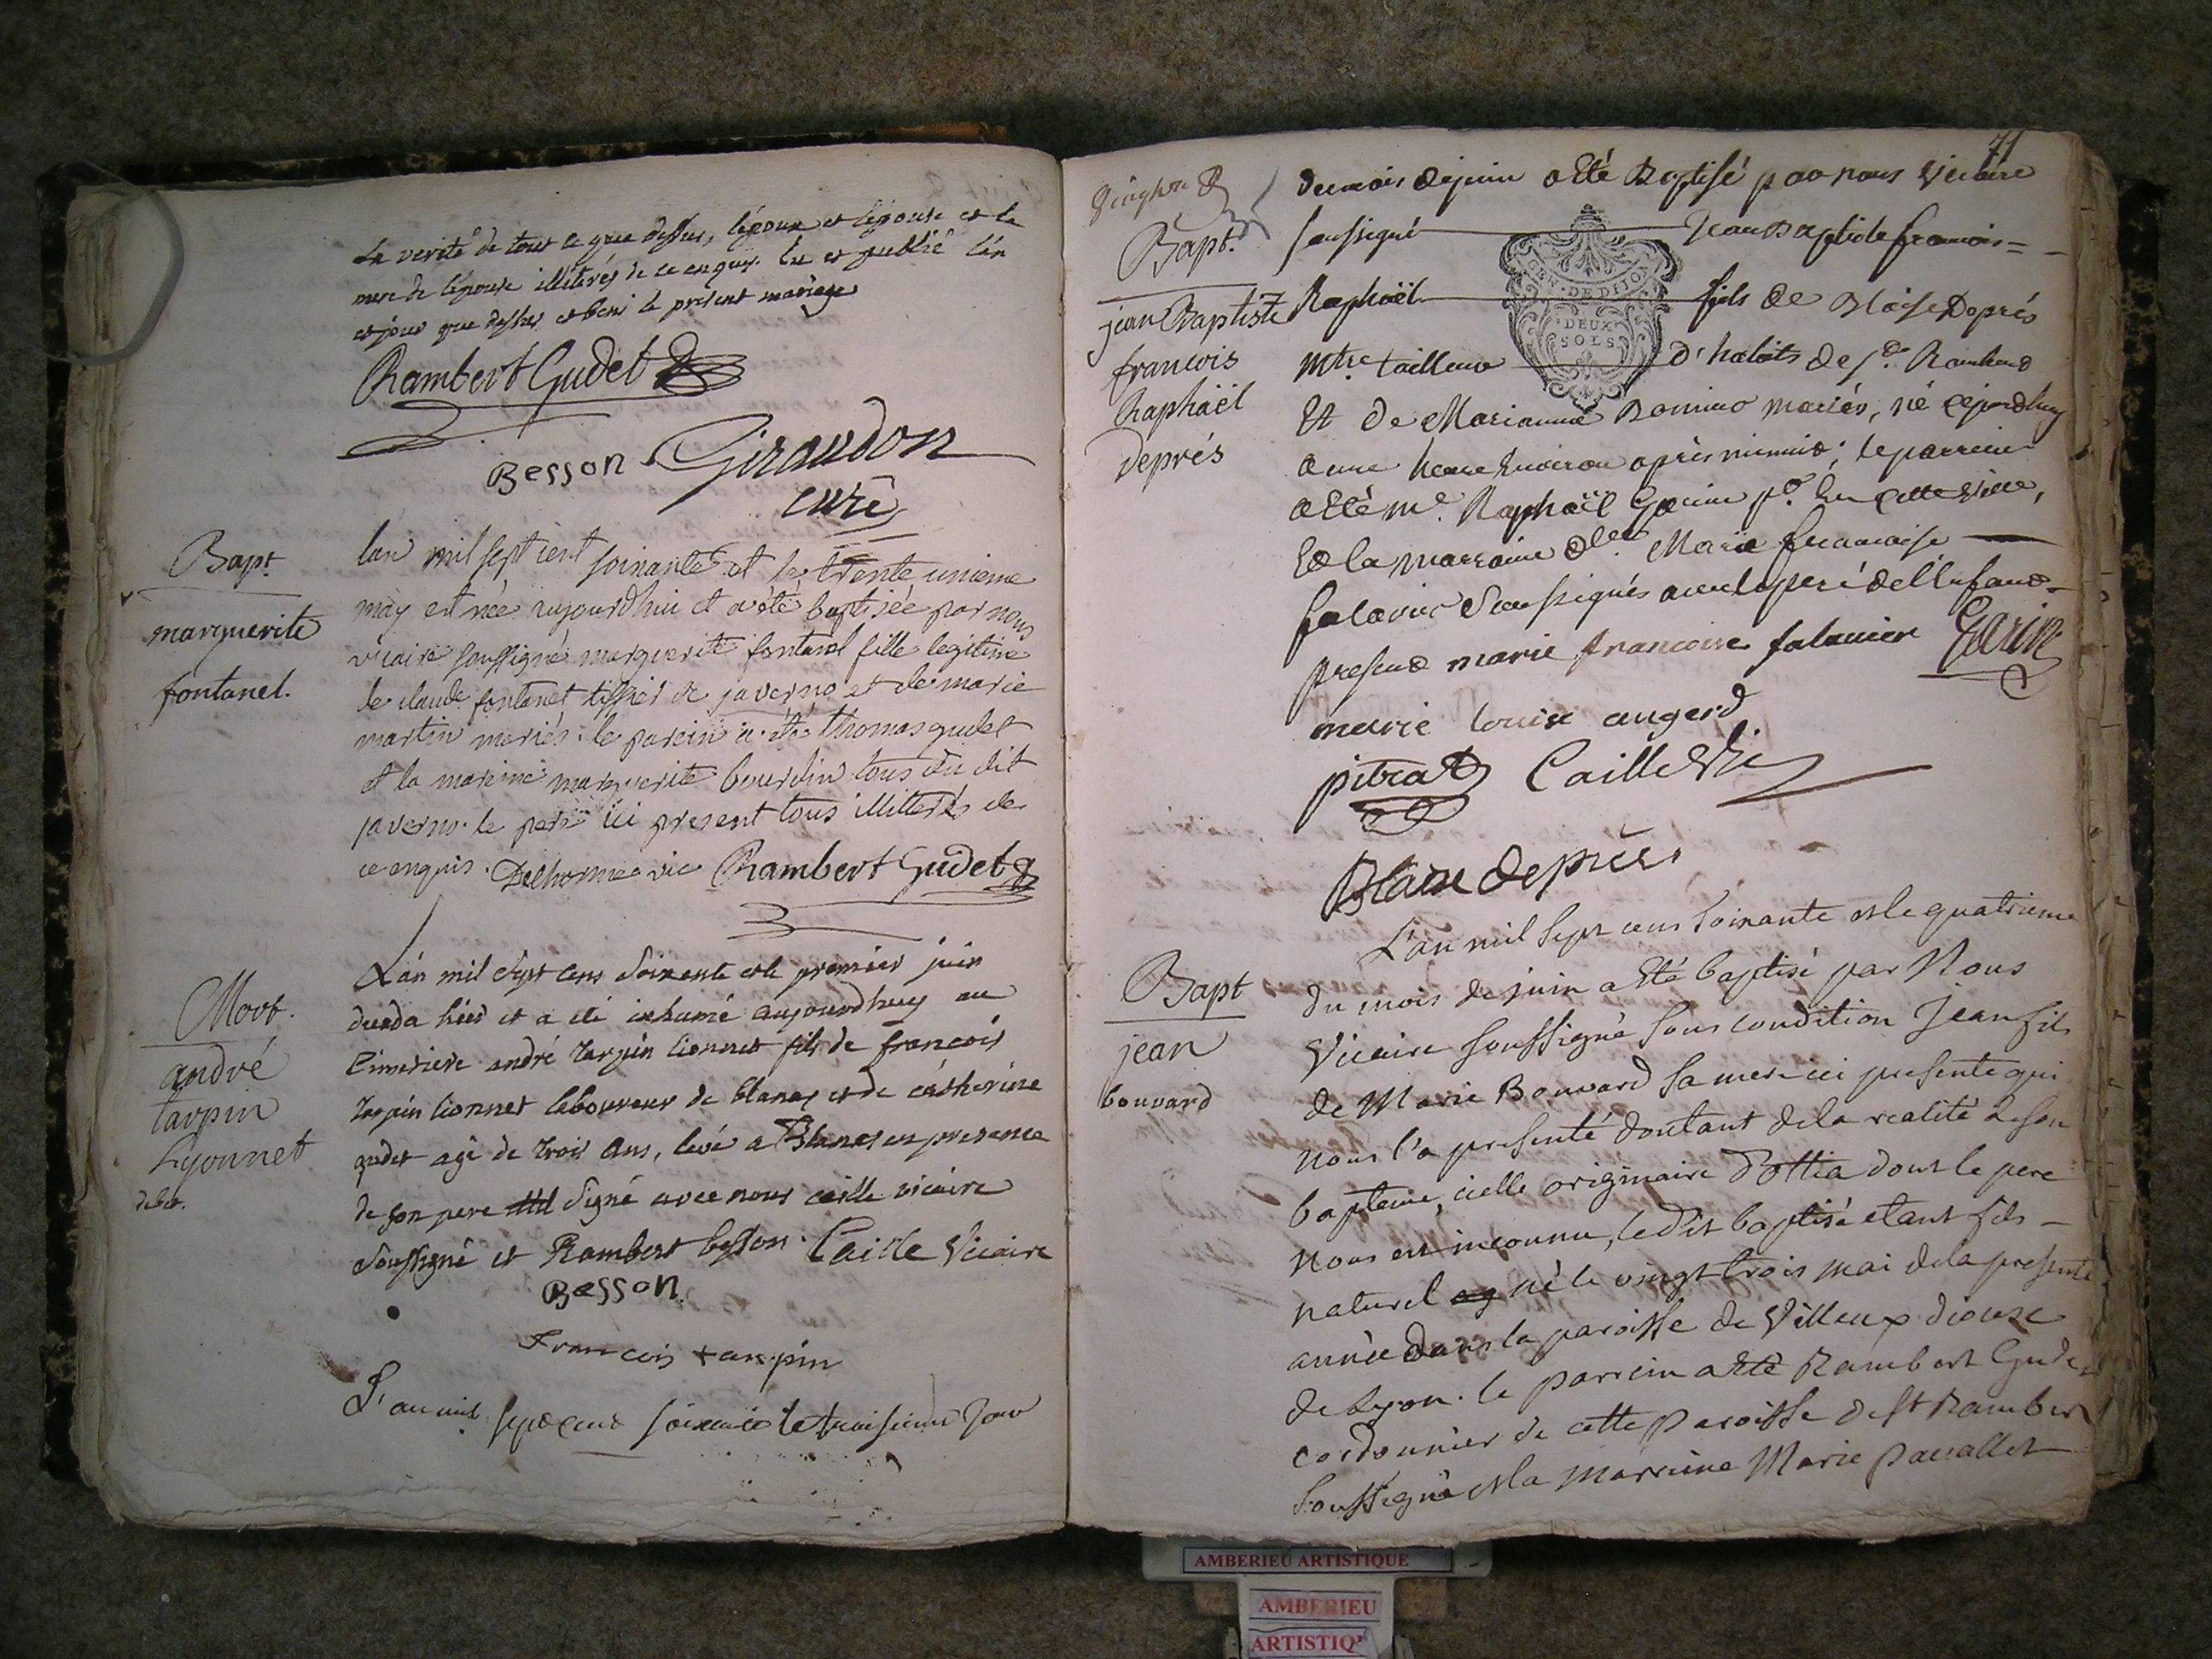 La verité de tout le que dessus, lépoux et lépouse et la
mere de lépouse illiterés de ce enquis. lu et publié lán
et jour que dessus et beni le present mariage
Rambert Gudet
Besson Giraudon
curé
Bapt.
marguerite
fontanel.
lan mil sept cent soixante et le trente unieme
may est née aujourdhui et a été baptisée par nous
vicaire soussigné marguerite fontanel fille legitime
de claude fontanel tissier de javerno et de marie
martin mariés. le parein a été thomas gudet
et la mareine marguerite bourdin tous du dit
javerno. le pere ici present tous illitterés de
ce enquis. Delhorme vic Rambert Gudet
Mort.
andré
tarpin
Lyonnet
Lán mil sept cens soixante et le premier juin
deceda hier et a été inhumé aujourdhuy au
cimetiere andré tarpin lionnet fils de françois
tarpin lionnet laboureur de blanas et de catherine
gudet agé de trois ans, levé a Blanas en presence
de son pere signé avec nous caille vicaire
soussigné et Rambert besson. Caille Vicaire
Besson.
Francois tarpin
L'an mil sept cent soixante le troisieme jour
71
du mois de juin a Eté Baptisé par nous Vicaire
Bapt.
soussigné Jean Baptiste francois =
GEN. DE DIJON
DEUX
SOLS
jean Baptiste
francois
Raphaël
deprés
Raphaël fils de Blaise Deprés
mtre tailleur d'habits de St. Rambert
Et de Marianne mariés, né cejourdhuy
a une heure Environ après minuit; le parrein
a Eté me. Raphaël Garin de cette Ville,
Et la marraine dlle Marie francoise
falavier soussignés avec le pere de l'Enfant
present marie francoise falavier Garin
marie louise augerd
pitrat Caille Vic
Blaise deprés
Bapt
jean
bouvard
L'an mil sept cens soixante et le quatrieme
du mois de juin a Eté baptisé par Nous
Vicaire soussigné sous condition Jean fils
de Marie Bouvard sa mere ici presente qui
nous l'a presenté doutant de la realité de son
bapteme, icelle originaire d'ottia dont le pere
nous est inconnu, le dit baptisé etant fils
naturel né le vingt trois mai de la presente
année dans la paroisse de Villeux diocese
de Lyon. le parrein a Eté Rambert Gudet
cordonnier de cette Paroisse de St Rambert
soussigné et la Marreine Marie Pavallet
AMBERIEU ARTISTIQUE
AMBERIEU
ARTISTIQ